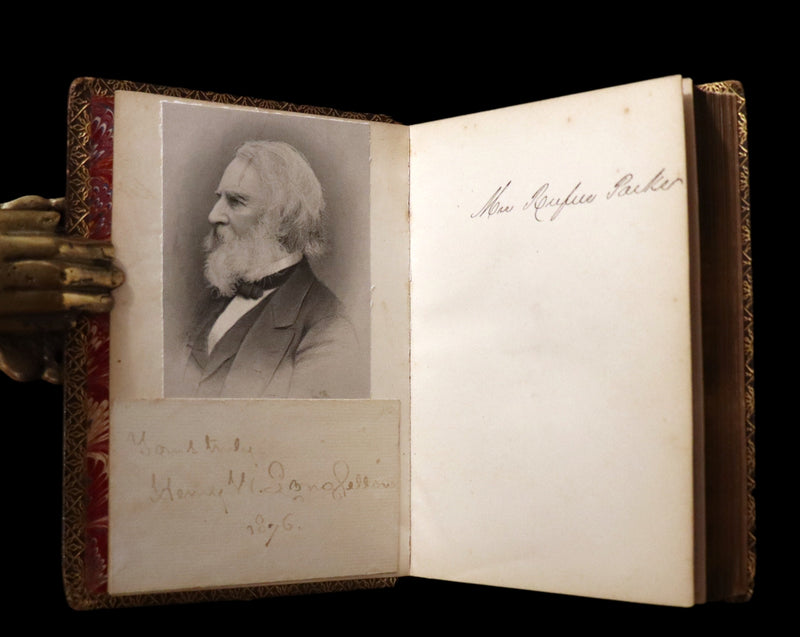 Yours truly
Henry W. Longfellow
1876.
Mrs Rufus Parker